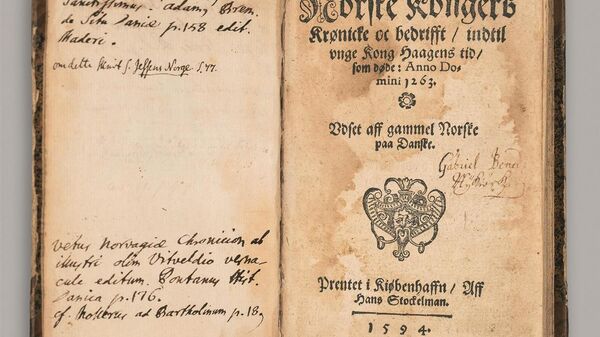 Sanctissimus. adamus Brem.
de Situ Daniæ p. 158 edit.
Maderi.
om dette skrit s. Jessens Norge S. 77.
vetus Norvagiæ Chronicion ab
illustri olim Vitveldio verna-
cule editum. Pontanus Hist.
Danica p. 176.
cf. Mollerus ad Bartholinum p. 18
Norske Kongers
Krønicke oc bedrifft / indtil
vnge Kong Haagens tid /
som døde: Anno Do-
mini 1263.
Vdset aff gammel Norske
paa Danske.
Gabriel
Prentet i Kiøbenhaffn / Aff
Hans Stockelman.
1594.